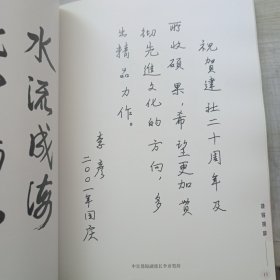 祝賀建社二十周年及
所收碩果，希望更加贯
彻先進文化的方向，多
出精品力作。
李彦
二〇〇一年国庆
水流成海